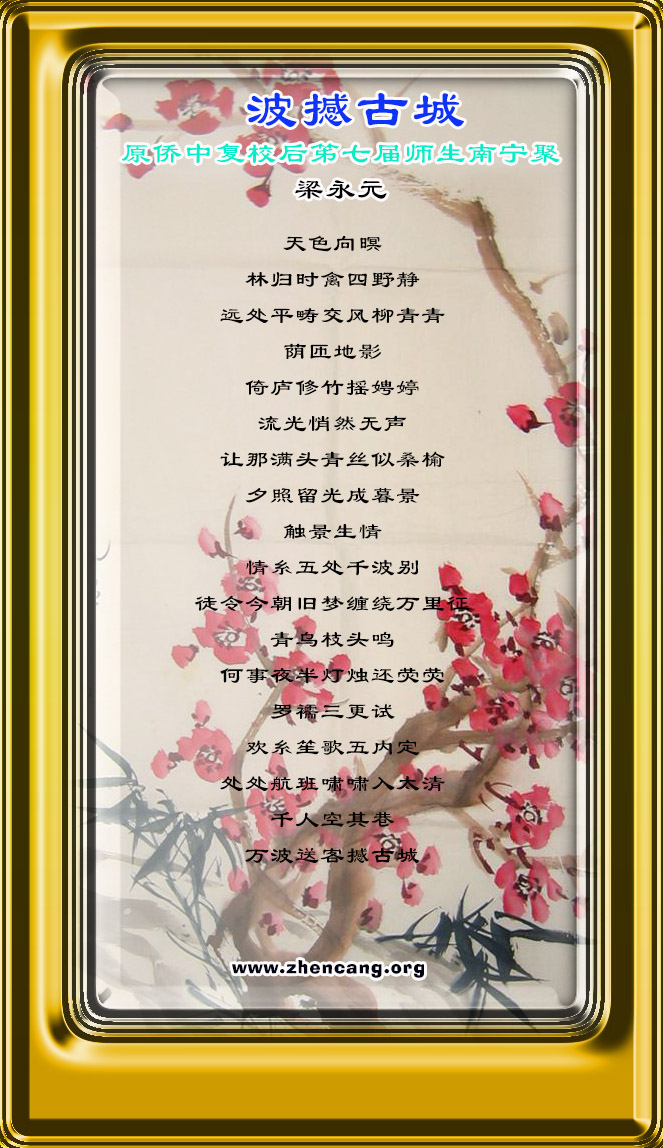 波撼古城
原侨中复校后第七届师生南宁聚
梁永元
天色向暝
林归时禽四野静
远处平畴交风柳青青
荫匝地影
倚庐修竹摇娉婷
流光悄然无声
让那满头青丝似桑榆
夕照留光成暮景
触景生情
情系五处千波别
徒令今朝旧梦缠绕万里征
青鸟枝头鸣
何事夜半灯烛还荧荧
罗襦三更试
欢系笙歌五内定
处处航班啸啸入太清
千人空其巷
万波送客撼古城
www.zhencang.org